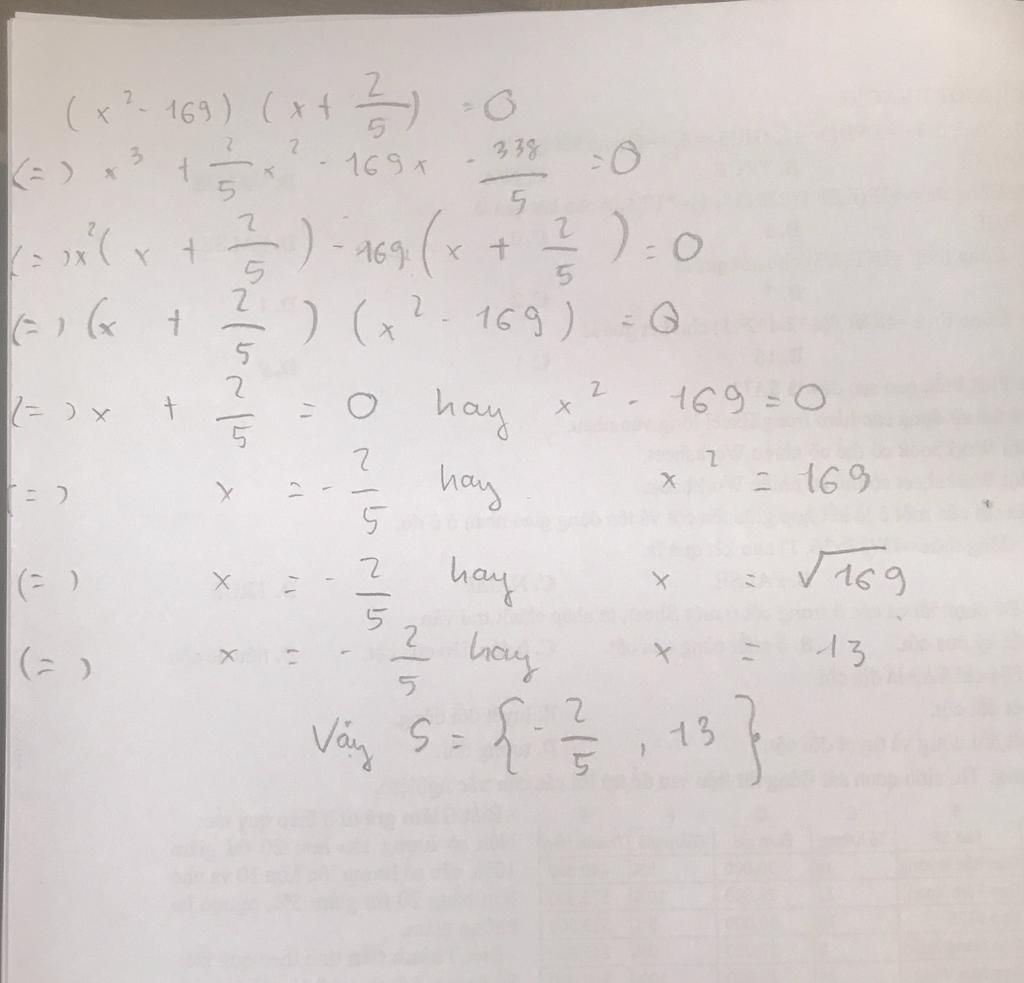 (x² - 169) (x + 2/5) = 0
(=) x³ + 2/5 x² - 169x - 338/5 = 0
(=) x² (x + 2/5) - 169 (x + 2/5) = 0
(=) (x + 2/5) (x² - 169) = 0
(=) x + 2/5 = 0 hay x² - 169 = 0
(=) x = - 2/5 hay x² = 169
(=) x = - 2/5 hay x = √169
(=) x = - 2/5 hay x = 13
Vậy S = { - 2/5 , 13 }